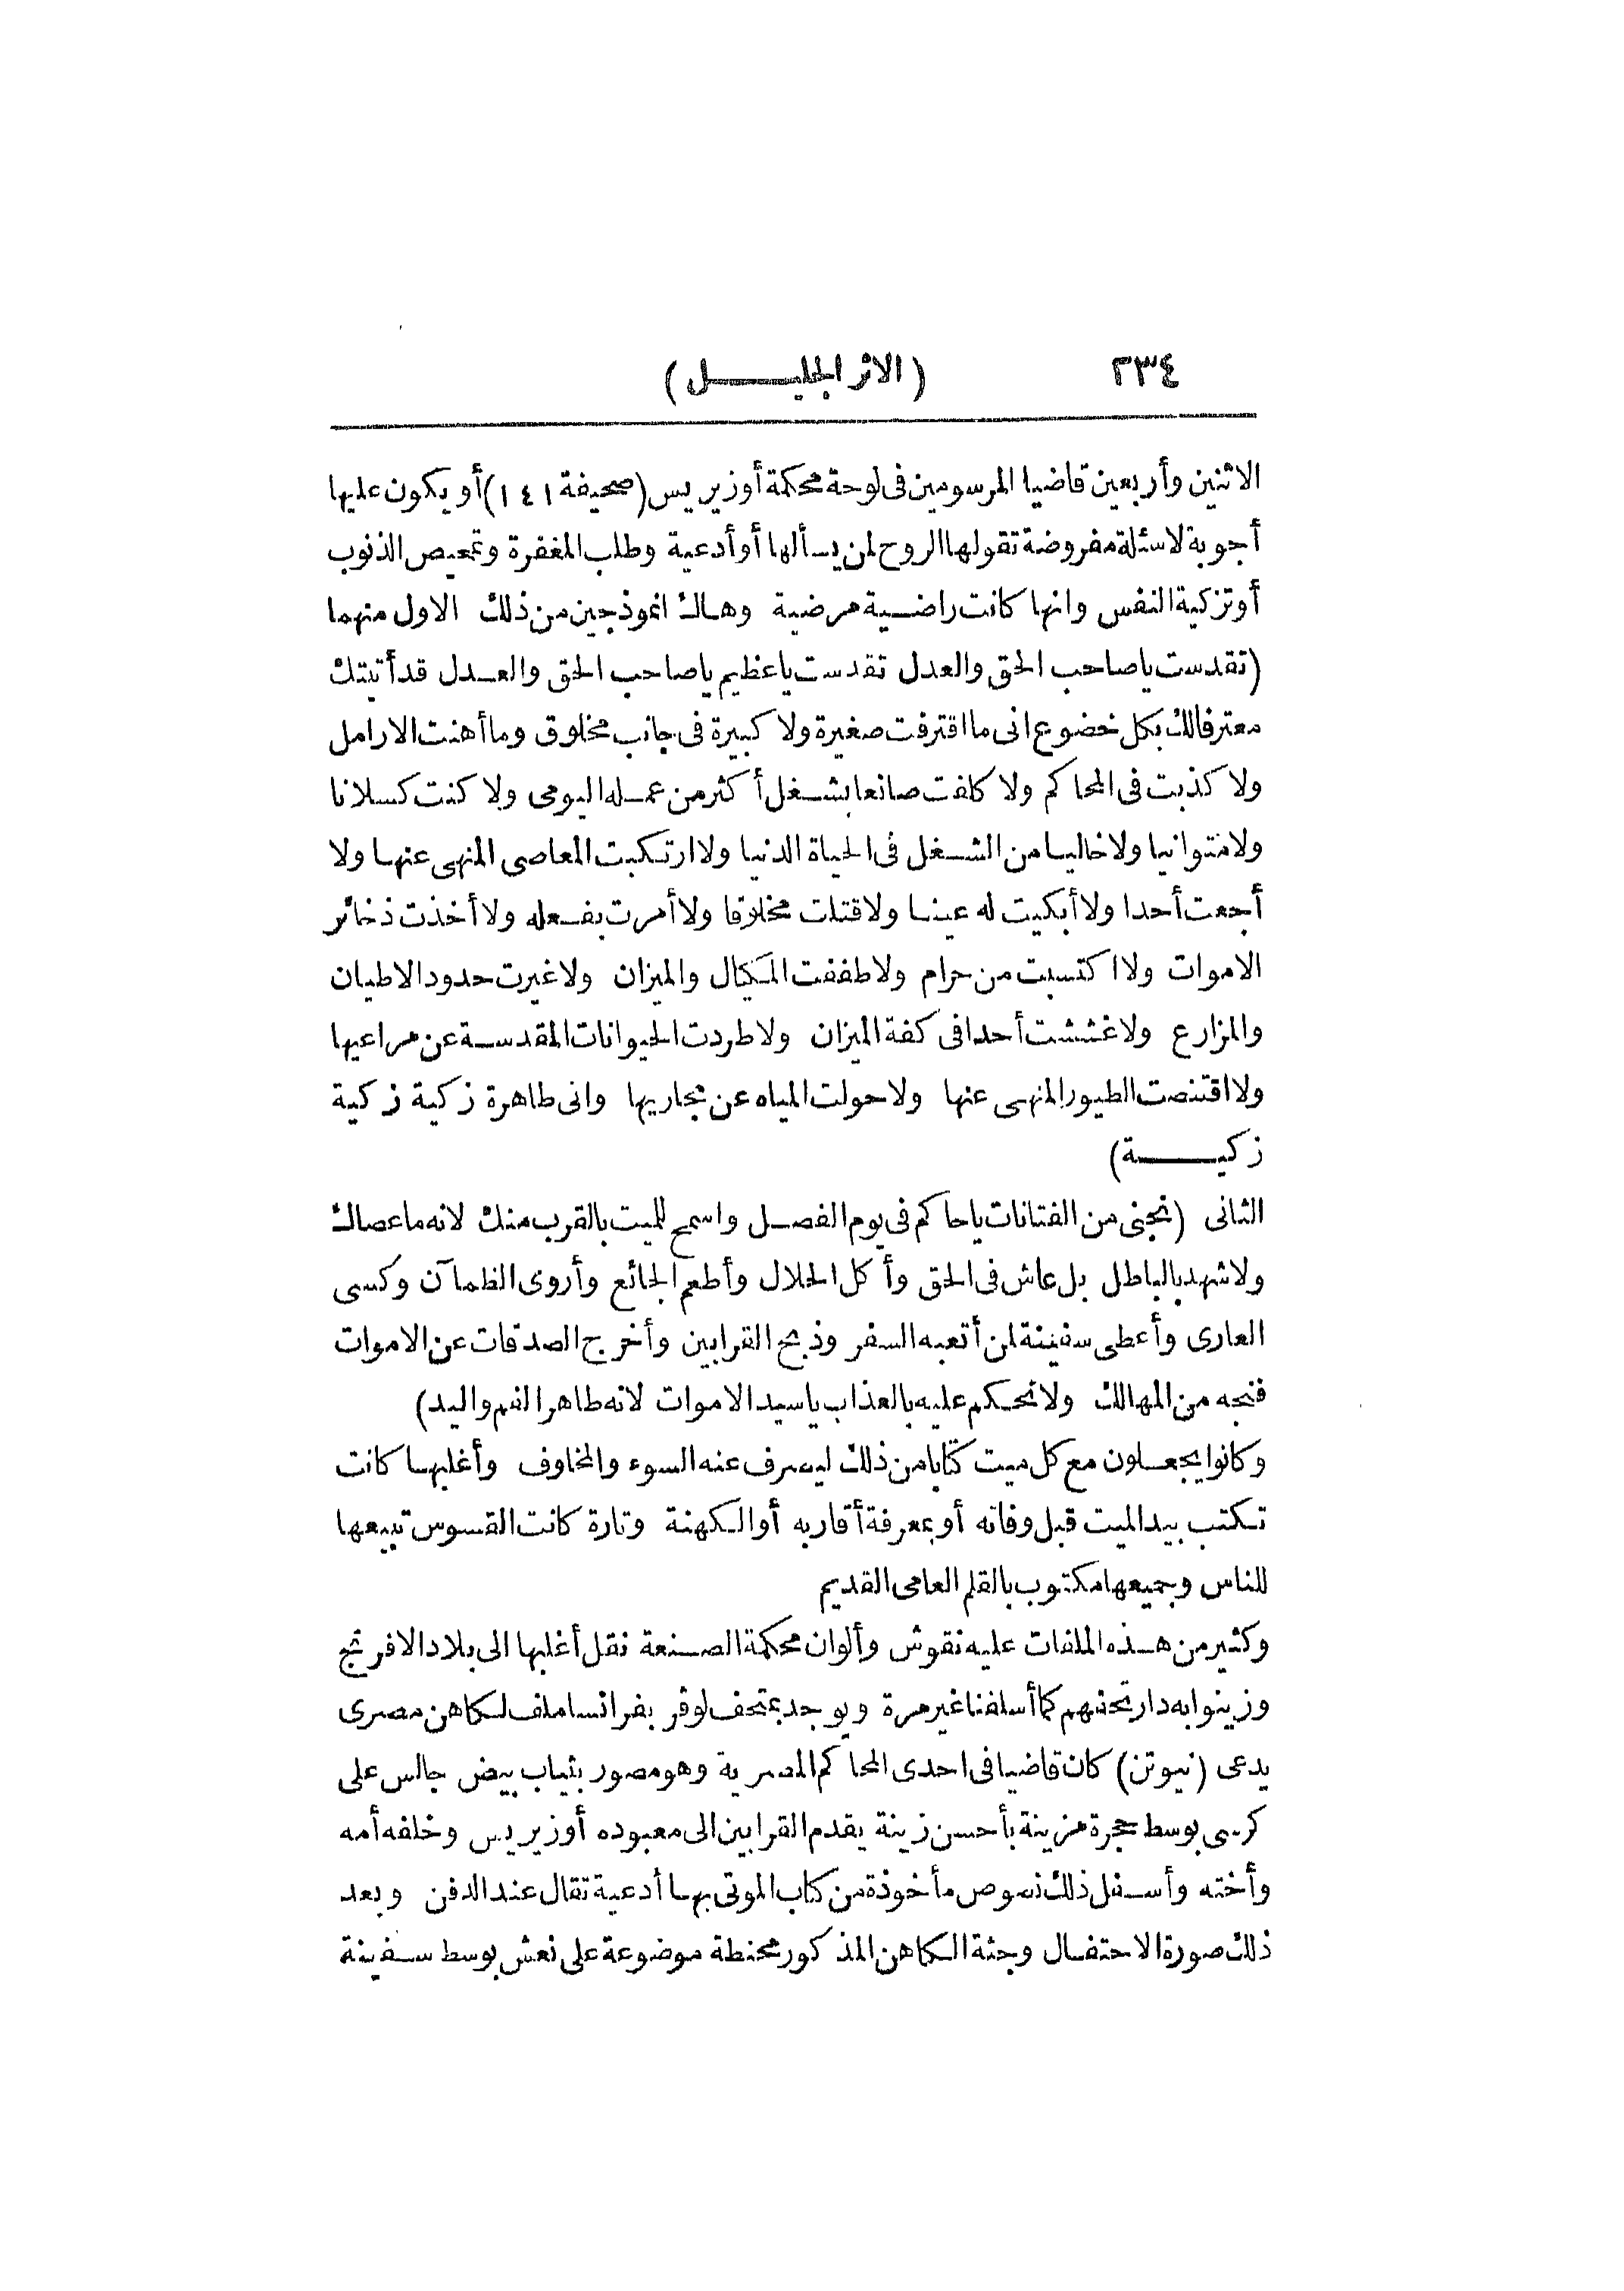 ٢٣٤ (الاثر الجليـــل)
الاثنين وأربعين قاضيا المرسومين فى لوحة محكمة أوزيريس (صحيفة ١٤١) أو يكون عليها
أجوبة لاسئلة مفروضة تقولها الروح لمن يسألها أو أدعية وطلب المغفرة وتمحيص الذنوب
أو تزكية النفس وانها كانت راضية مرضية وهاك انموذجين من ذلك الاول منهما
(تقدست يا صاحب الحق والعدل تقدست يا عظيم يا صاحب الحق والعدل قد أتيتك
معترفا لك بكل خضوع انى ما اقترفت صغيرة ولا كبيرة فى جانب مخلوق وما أهنت الارامل
ولا كذبت فى المحاكم ولا كلفت صانعا بشغل أكثر من عمله اليومى ولا كنت كسلانا
ولا متوانيا ولا خاليا من الشغل فى الحياة الدنيا ولا ارتكبت المعاصى المنهى عنها ولا
أجعت أحدا ولا أبكيت له عينا ولا قتلت مخلاقا ولا أمرت بفعله ولا أخذت ذخائر
الاموات ولا اكتسبت من حرام ولا طففت المكيال والميزان ولا غيرت حدود الاطيان
والمزارع ولا غششت أحدا فى كفة الميزان ولا طردت الحيوانات المقدسة عن مراعيها
ولا اقتنصت الطيور المنهى عنها ولا حولت المياه عن مجاريها وانى طاهرة زكية زكية
زكيـــة)
الثانى (نجنى من الفتانات يا حاكم فى يوم الفصل واسمح للميت بالقرب منك لانه ما عصاك
ولا شهد بالباطل بل عاش فى الحق وأكل الحلال وأطعم الجائع وأروى الظمآن وكسى
العارى وأعطى سفينة لمن أتعبه السفر وذبح القرابين وأخرج الصدقات عن الاموات
فنجه من المهالك ولا تحكم عليه بالعذاب يا سيد الاموات لانه طاهر الفم واليد)
وكانوا يجعلون مع كل ميت كتابا من ذلك ليصرف عنه السوء والمخاوف وأغلبها كانت
تكتب بيد الميت قبل وفاته أو بمعرفة أقاربه أو الكهنة وتارة كانت القسوس تبيعها
للناس وجميعها مكتوب بالقلم العامى القديم
وكثير من هذه الملفات عليه نقوش وألوان محكمة الصنعة نقل أغلبها الى بلاد الافرنج
وزينوا به دار تحفهم كما أسلفنا غير مرة ويوجد بمتحف لوفر بفرانسا ملف لكاهن مصرى
يدعى (نيوتن) كان قاضيا فى احدى المحاكم المصرية وهو مصور بثياب بيض جالس على
كرسى بوسط حجرة مزينة بأحسن زينة يقدم القرابين الى معبوده أوزيريس وخلفه أمه
وأخته وأسفل ذلك نصوص مأخوذة من كتاب الموتى بها أدعية تقال عند الدفن وبعد
ذلك صورة الاحتفال وجثة الكاهن المذكور محنطة موضوعة على نعش بوسط سفينة